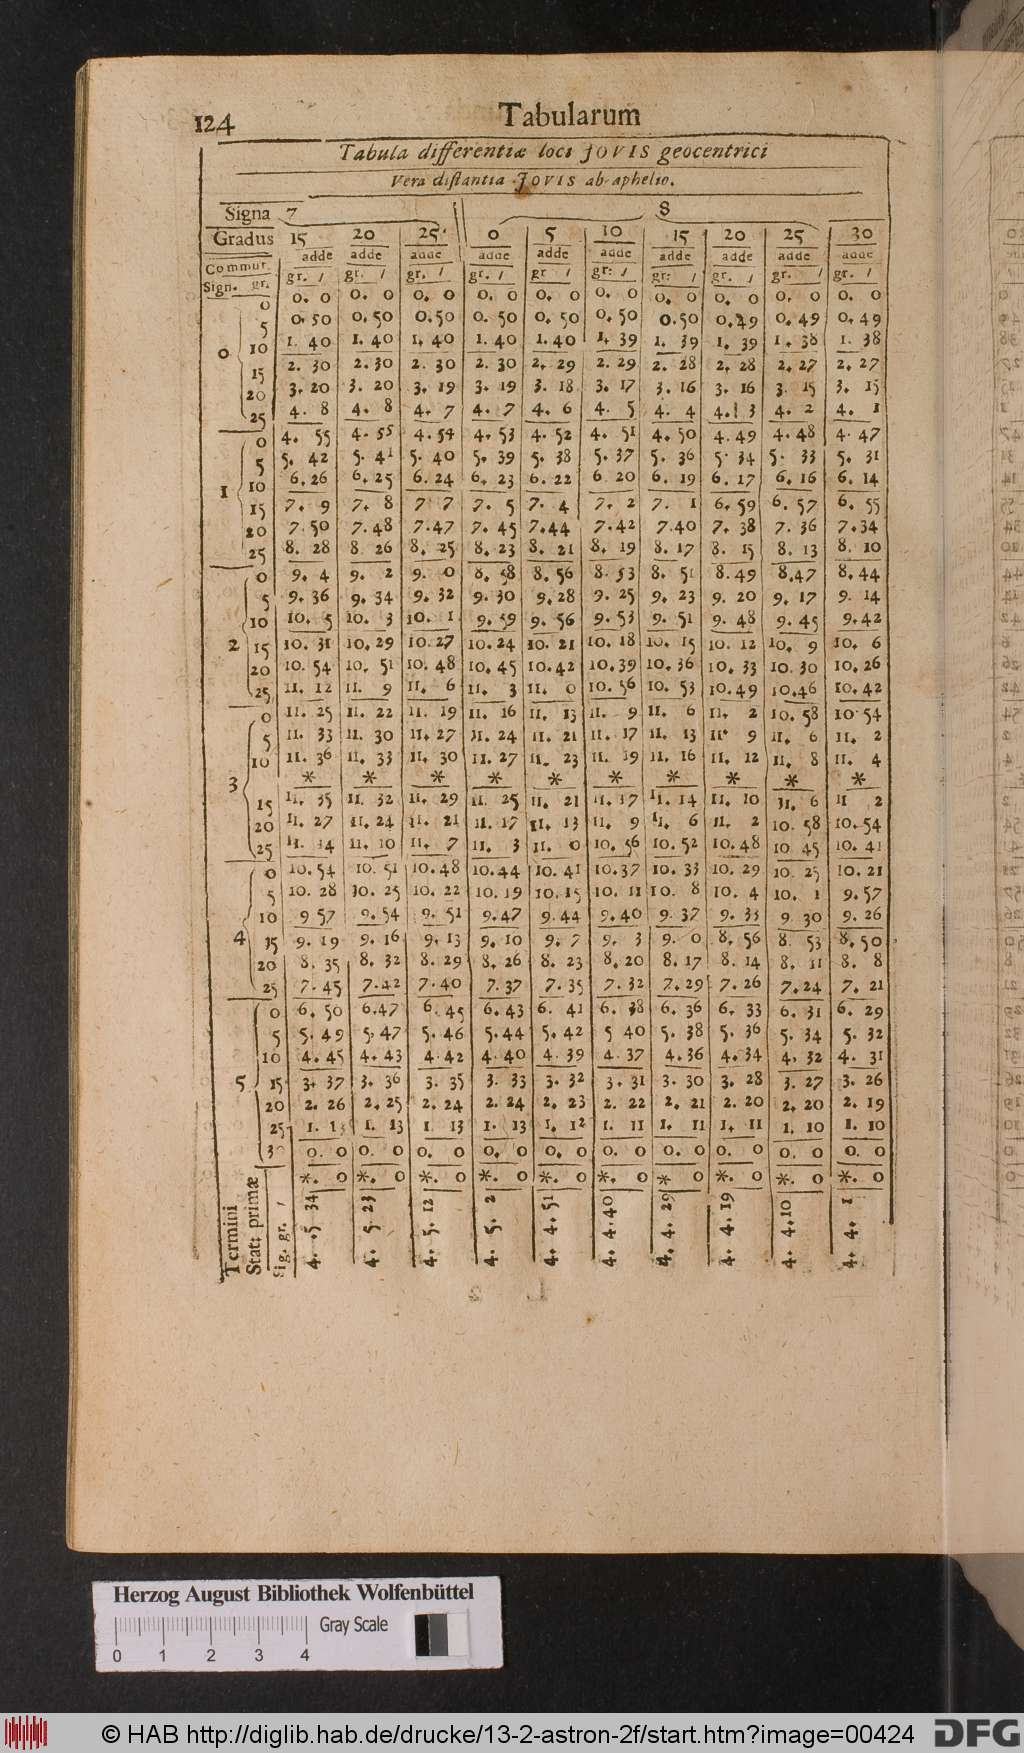 124 Tabularum
Tabula differentiæ loci JOVIS geocentrici
Vera distantia JOVIS ab aphelio.
Signa 7 8
Gradus 15 20 25 0 5 10 15 20 25 30
adde adde adde adde adde adde adde adde adde adde
Commut. gr. / gr. / gr. / gr. / gr / gr: / gr: / gr. / gr. / gr. /
Sign. gr.
0 0 0. 0 0. 0 0. 0 0. 0 0. 0 0. 0 0. 0 0. 0 0. 0 0. 0
5 0. 50 0. 50 0. 50 0. 50 0. 50 0. 50 0. 50 0. 49 0. 49 0. 49
10 1. 40 1. 40 1. 40 1. 40 1. 40 1. 39 1. 39 1. 39 1. 38 1. 38
15 2. 30 2. 30 2. 30 2. 30 2. 29 2. 29 2. 28 2. 28 2. 27 2. 27
20 3. 20 3. 20 3. 19 3. 19 3. 18 3. 17 3. 16 3. 16 3. 15 3. 15
25 4. 8 4. 8 4. 7 4. 7 4. 6 4. 5 4. 4 4. 3 4. 2 4. 1
1 0 4. 55 4. 55 4. 54 4. 53 4. 52 4. 51 4. 50 4. 49 4. 48 4. 47
5 5. 42 5. 41 5. 40 5. 39 5. 38 5. 37 5. 36 5. 34 5. 33 5. 31
10 6. 26 6. 25 6. 24 6. 23 6. 22 6 20 6. 19 6. 17 6. 16 6. 14
15 7. 9 7. 8 7 7 7. 5 7. 4 7. 2 7. 1 6. 59 6. 57 6. 55
20 7. 50 7. 48 7. 47 7. 45 7. 44 7. 42 7. 40 7. 38 7. 36 7. 34
25 8. 28 8. 26 8. 25 8. 23 8. 21 8. 19 8. 17 8. 15 8. 13 8. 10
2 0 9. 4 9. 2 9. 0 8. 58 8. 56 8. 53 8. 51 8. 49 8. 47 8. 44
5 9. 36 9. 34 9. 32 9. 30 9. 28 9. 25 9. 23 9. 20 9. 17 9. 14
10 10. 5 10. 3 10. 1 9. 59 9. 56 9. 53 9. 51 9. 48 9. 45 9. 42
15 10. 31 10. 29 10. 27 10. 24 10. 21 10. 18 10. 15 10. 12 10. 9 10. 6
20 10. 54 10. 51 10. 48 10. 45 10. 42 10. 39 10. 36 10. 33 10. 30 10. 26
25 11. 12 11. 9 11. 6 11. 3 11. 0 10. 56 10. 53 10. 49 10. 46 10. 42
3 0 11. 25 11. 22 11. 19 11. 16 11. 13 11. 9 11. 6 11. 2 10. 58 10. 54
5 11. 33 11. 30 11. 27 11. 24 11. 21 11. 17 11. 13 11. 9 11. 6 11. 2
10 11. 36 11. 33 11. 30 11. 27 11. 23 11. 19 11. 16 11. 12 11. 8 11. 4
* * * * * * * * * *
15 11. 35 11. 32 11. 29 11. 25 11. 21 11. 17 11. 14 11. 10 11. 6 11 2
20 11. 27 11. 24 11. 21 11. 17 11. 13 11. 9 11. 6 11. 2 10. 58 10. 54
25 11. 14 11. 10 11. 7 11. 3 11. 0 10. 56 10. 52 10. 48 10 45 10. 41
4 0 10. 54 10. 51 10. 48 10. 44 10. 41 10. 37 10. 33 10. 29 10. 25 10. 21
5 10. 28 10. 25 10. 22 10. 19 10. 15 10. 11 10. 8 10. 4 10. 1 9. 57
10 9 57 9. 54 9. 51 9. 47 9. 44 9. 40 9. 37 9. 33 9 30 9. 26
15 9. 19 9. 16 9. 13 9. 10 9. 7 9. 3 9. 0 8. 56 8. 53 8. 50
20 8. 35 8. 32 8. 29 8. 26 8. 23 8. 20 8. 17 8. 14 8. 11 8. 8
25 7. 45 7. 42 7. 40 7. 37 7. 35 7. 32 7. 29 7. 26 7. 24 7. 21
5 0 6. 50 6. 47 6. 45 6. 43 6. 41 6. 38 6. 36 6. 33 6. 31 6. 29
5 5. 49 5. 47 5. 46 5. 44 5. 42 5 40 5. 38 5. 36 5. 34 5. 32
10 4. 45 4. 43 4. 42 4. 40 4. 39 4. 37 4. 36 4. 34 4. 32 4. 31
15 3. 37 3. 36 3. 35 3. 33 3. 32 3. 31 3. 30 3. 28 3. 27 3. 26
20 2. 26 2. 25 2. 24 2. 24 2. 23 2. 22 2. 21 2. 20 2. 20 2. 19
25 1. 13 1. 13 1. 13 1. 13 1. 12 1. 11 1. 11 1. 11 1. 10 1. 10
30 0. 0 0. 0 0. 0 0. 0 0. 0 0. 0 0. 0 0. 0 0. 0 0. 0
*. 0 *. 0 *. 0 *. 0 *. 0 *. 0 * 0 *. 0 *. 0 *. 0
Termini
Stat: primæ
Sig. gr. /
4. 5 34
4. 5 23
4. 5. 12
4. 5. 2
4. 4. 51
4. 4. 40
4. 4. 29
4. 4. 19
4. 4. 10
4. 4. 1
Herzog August Bibliothek Wolfenbüttel
Gray Scale
0 1 2 3 4
© HAB http://diglib.hab.de/drucke/13-2-astron-2f/start.htm?image=00424 DFG